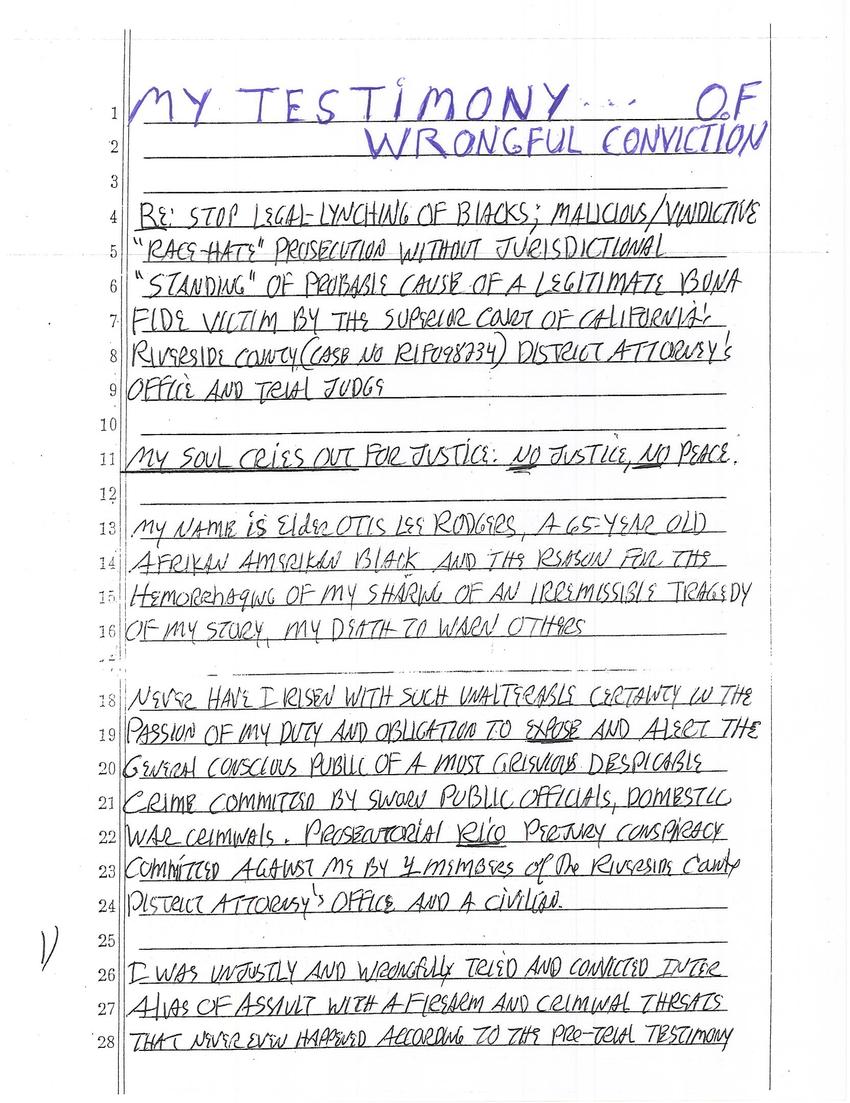 1 MY TESTIMONY... OF
2 WRONGFUL CONVICTION
3
4 RE: STOP LEGAL-LYNCHING OF BLACKS; MALICIOUS/VINDICTIVE
5 "RACE-HATE" PROSECUTION WITHOUT JURISDICTIONAL
6 "STANDING" OF PROBABLE CAUSE OF A LEGITIMATE BONA
7 FIDE VICTIM BY THE SUPERIOR COURT OF CALIFORNIA'S
8 RIVERSIDE COUNTY (CASE NO RIF098234) DISTRICT ATTORNEY'S
9 OFFICE AND TRIAL JUDGE
10
11 MY SOUL CRIES OUT FOR JUSTICE: NO JUSTICE, NO PEACE.
12
13 MY NAME is Elder OTIS LEE RODGERS, A 65-YEAR OLD
14 AFRIKAN AMERIKAN BLACK AND THE REASON FOR THE
15 HEMORRHAGING OF MY SHARING OF AN IRREMISSIBLE TRAGEDY
16 OF MY STORY, MY DEATH TO WARN OTHERS
18 NEVER HAVE I RISEN WITH SUCH UNALTERABLE CERTAINTY IN THE
19 PASSION OF MY DUTY AND OBLIGATION TO EXPOSE AND ALERT THE
20 GENERAL CONSCIOUS PUBLIC OF A MOST GRIEVIOUS DESPICABLE
21 CRIME COMMITTED BY SWORN PUBLIC OFFICIALS, DOMESTIC
22 WAR CRIMINALS. PROSECUTORIAL RICO PERJURY CONSPIRACY
23 COMMITTED AGAINST ME BY 4 MEMBERS of The RIVERSIDE County
24 DISTRICT ATTORNEY'S OFFICE AND A CIVILIAN.
25
1)
26 I WAS UNJUSTLY AND WRONGFULLY TRIED AND CONVICTED INTER
27 ALIAS OF ASSAULT WITH A FIREARM AND CRIMINAL THREATS
28 THAT NEVER EVEN HAPPENED ACCORDING TO THE PRE-TRIAL TESTIMONY